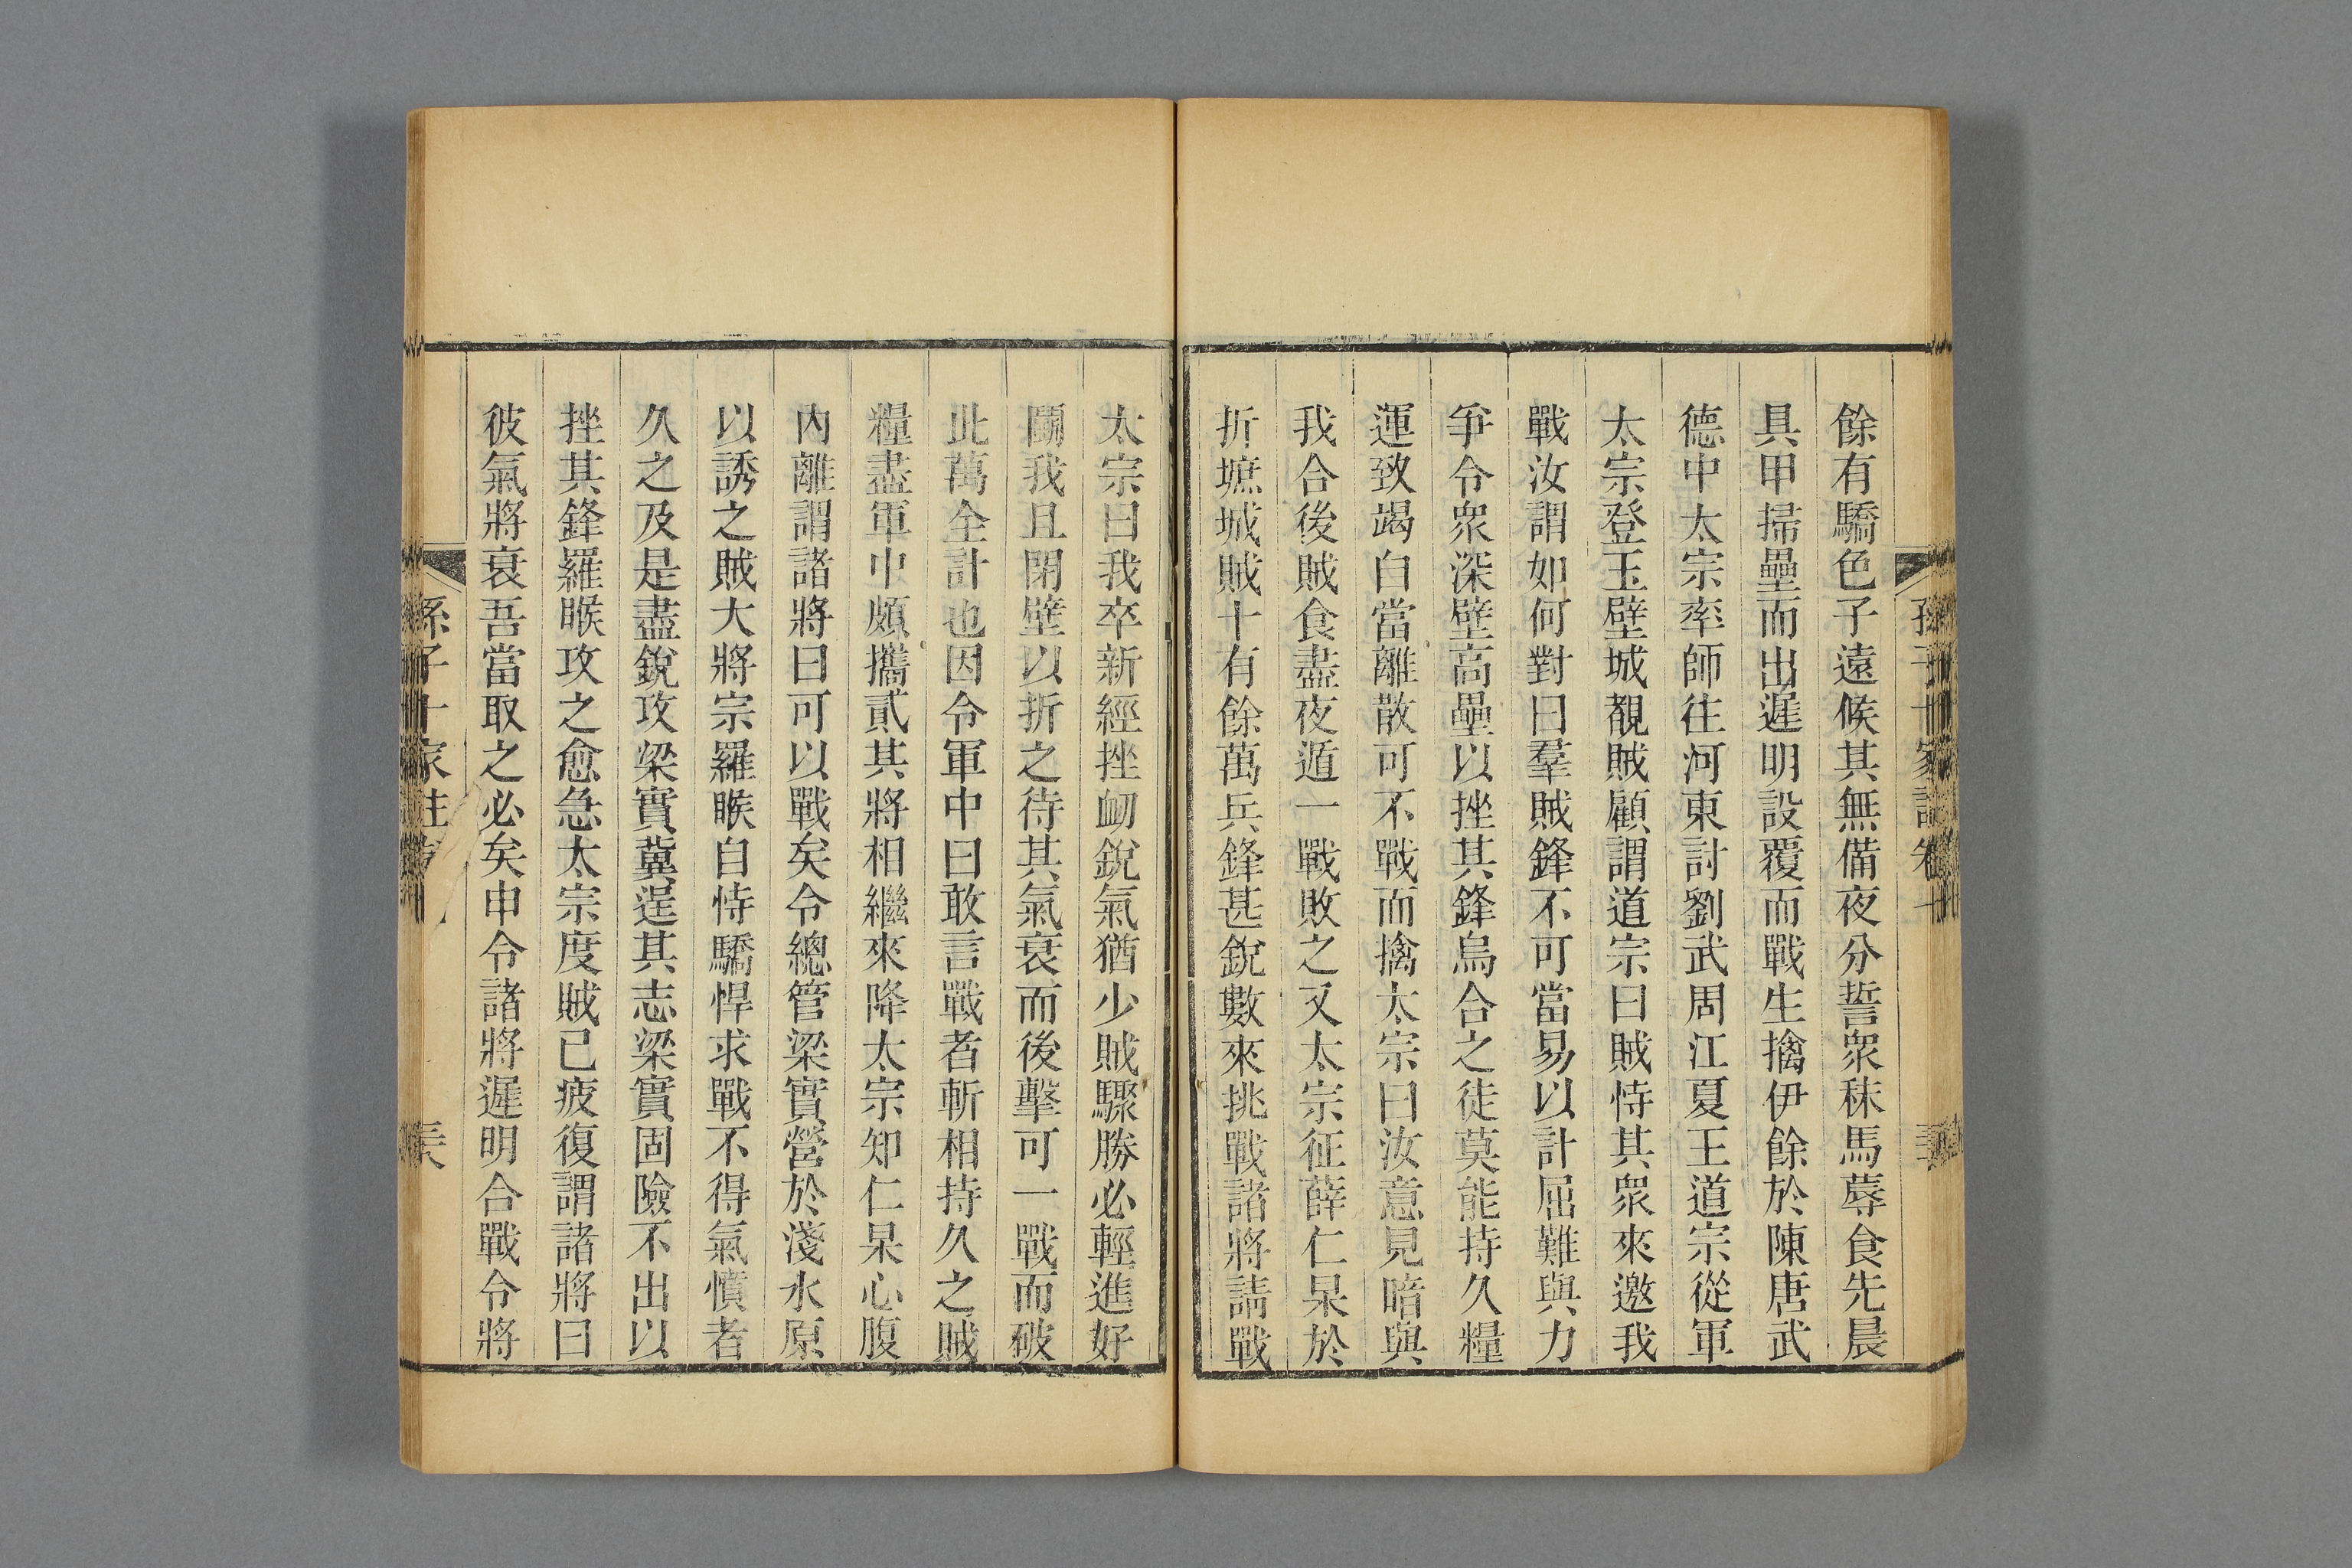 餘有驕色子遠候其無備夜分誓衆秣馬蓐食先晨
具甲掃壘而出遲明設覆而戰生擒伊餘於陳唐武
德中太宗率師往河東討劉武周江夏王道宗從軍
太宗登玉壁城覩賊顧謂道宗曰賊恃其衆來邀我
戰汝謂如何對曰羣賊鋒不可當易以計屈難與力
爭令衆深壁高壘以挫其鋒烏合之徒莫能持久糧
運致竭自當離散可不戰而擒太宗曰汝意見暗與
我合後賊食盡夜遁一戰敗之又太宗征薛仁杲於
折墌城賊十有餘萬兵鋒甚銳數來挑戰諸將請戰
太宗曰我卒新經挫衂銳氣猶少賊驟勝必輕進好
鬭我且閉壁以折之待其氣衰而後擊可一戰而破
此萬全計也因令軍中曰敢言戰者斬相持久之賊
糧盡軍中頗攜貳其將相繼來降太宗知仁杲心腹
內離謂諸將曰可以戰矣令總管梁實營於淺水原
以誘之賊大將宗羅睺自恃驕悍求戰不得氣憤者
久之及是盡銳攻梁實冀逞其志梁實固險不出以
挫其鋒羅睺攻之愈急太宗度賊已疲復謂諸將曰
彼氣將衰吾當取之必矣申令諸將遲明合戰令將
孫子十家註